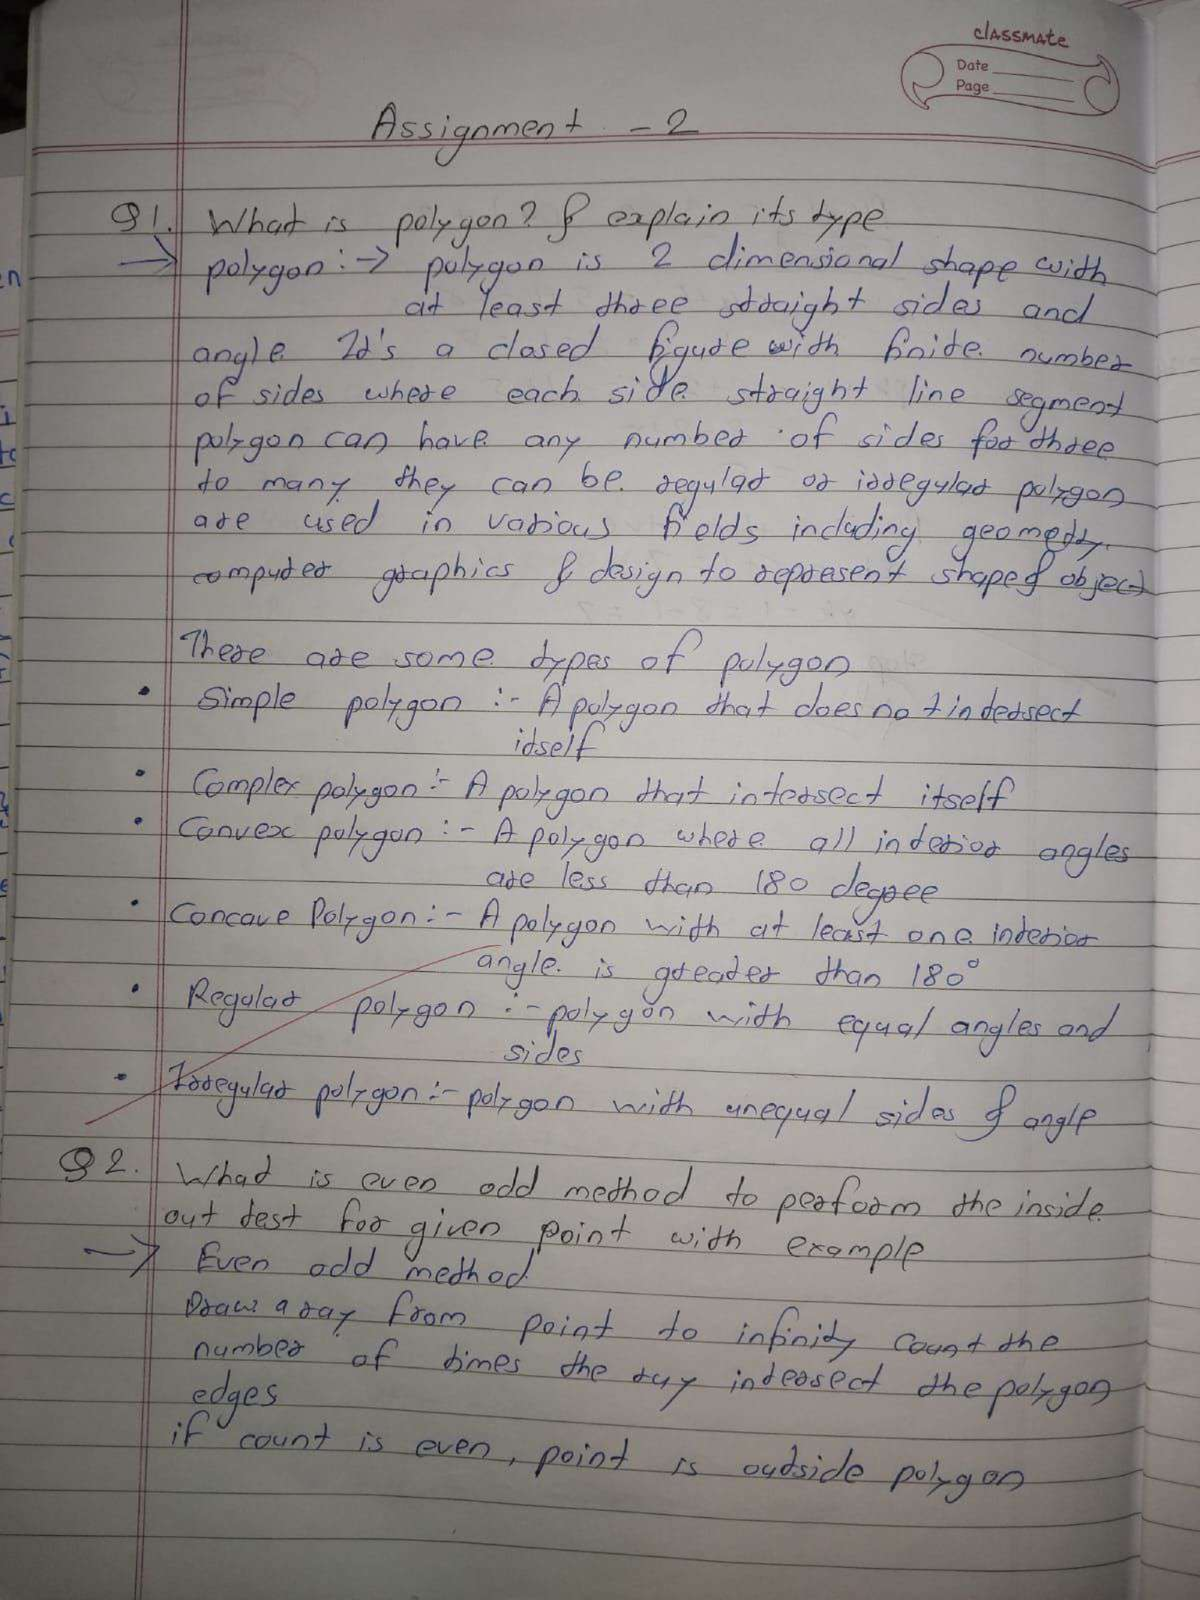 classmate
Date
Page
Assignment - 2
Q1. What is polygon? & explain its type
→ polygon :→ polygon is 2 dimensional shape with
at least three straight sides and
angle. It's a closed figure with finite number
of sides where each side straight line segment
polygon can have any number of sides for three
to many they can be regular or irregular polygon
are used in various fields including geometry,
computer graphics & design to represent shape & object
There are some types of polygon
• Simple polygon :- A polygon that does not intersect
itself
• Complex polygon :- A polygon that intersect itself
• Convex polygon :- A polygon where all interior angles
are less than 180 degree
• Concave Polygon :- A polygon with at least one interior
angle is greater than 180°
• Regular polygon :- polygon with equal angles and
sides
• Irregular polygon :- polygon with unequal sides & angle
Q2. What is even odd method to perform the inside
out test for given point with example
→ Even odd method
Draw a ray from point to infinity count the
number of times the ray intersect the polygon
edges
if count is even, point is outside polygon